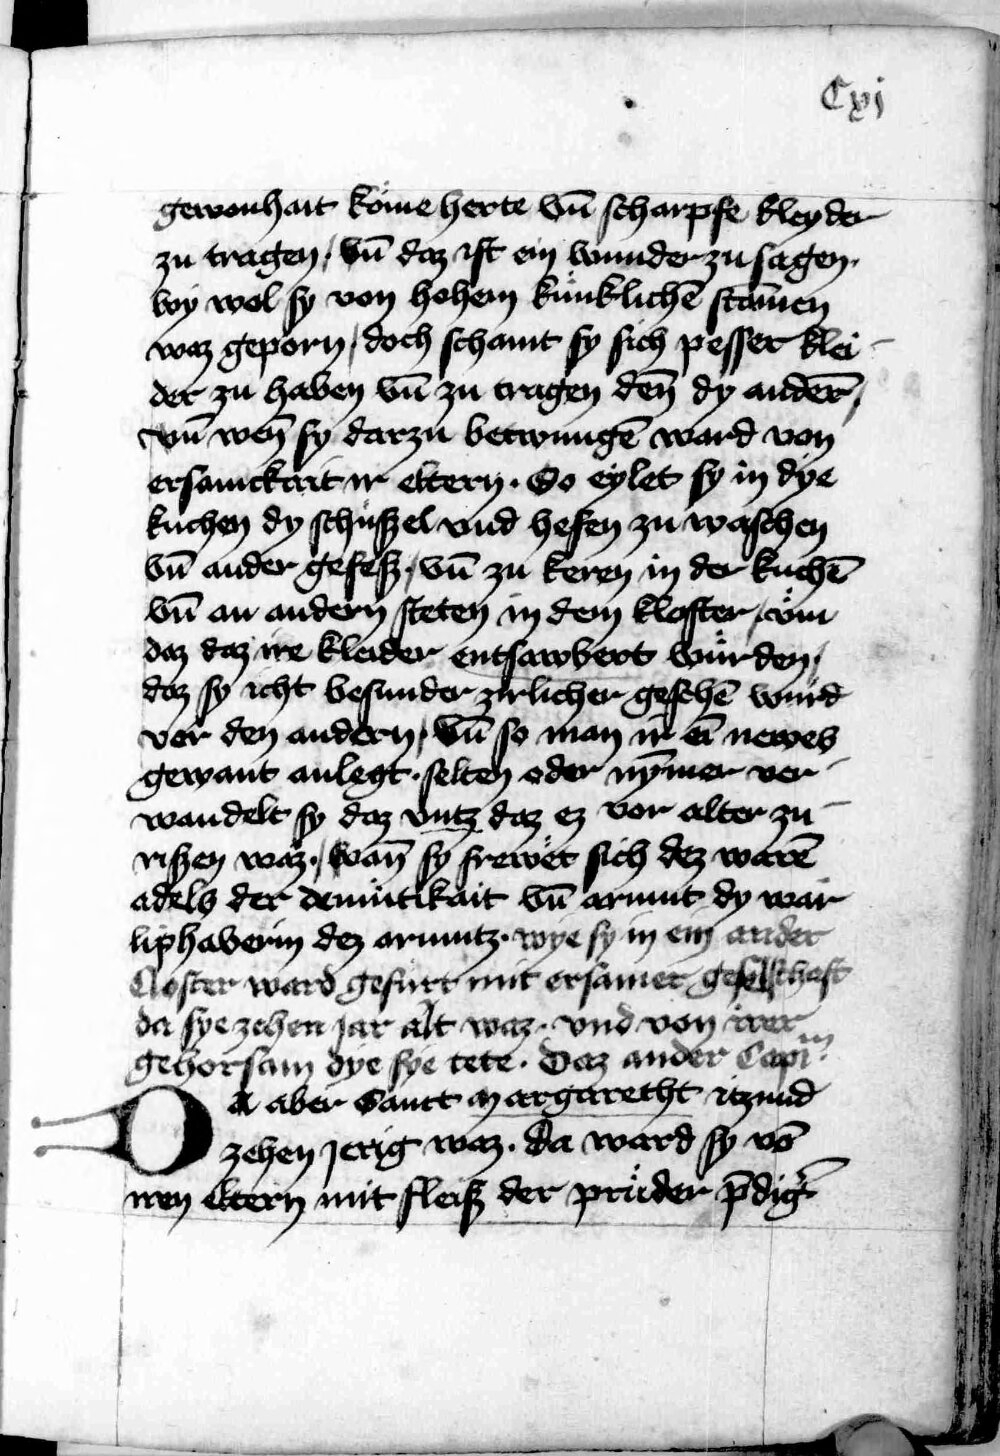 Cxj
gewonhait köme herte vn̄ scharpfe kleyder
zu tragen / vn̄ daz ist ein wunder zu sagen .
wy wol sy von hohem künklichē stam̄en
waz geporn / doch schamt sy sich pesser klei -
der zu haben vn̄ zu tragen den̄ dy anderē /
vn̄ wen̄ sy darzu betwungē ward von
ersamckait ir eltern . So eylet sy in dye
kuchen dy schüszel vnd hefen zu waschen
vn̄ ander gefesz / vn̄ zu keren in der kuchē
vn̄ an andern steten in dem kloster / vm̄
daz daz ire kleider entsawbert würden /
daz sy icht besunder zirlicher gesehē würd
vor den andern / vn̄ so man ir ei̅ newes
gewant anlegt . selten oder nȳmer ver -
wandelt sy daz vntz daz ez vor alter zu -
riszen waz . / wan̄ sy frewet sich dez warē
adels der demütikait vn̄ armut dy war
liphaberin dez armutz . wye sy in ein ander
Closter ward gefürt mit ersamer geselschaft
da sye zehen jar alt waz . vnd von irer
gehorsam dye sye tete . Daz ander Capim̅ .
Da aber Sanct margaretht itzund
zehen jerig waz . da ward sy vō
iren eltern mit fleisz der prüder p̄dig̉